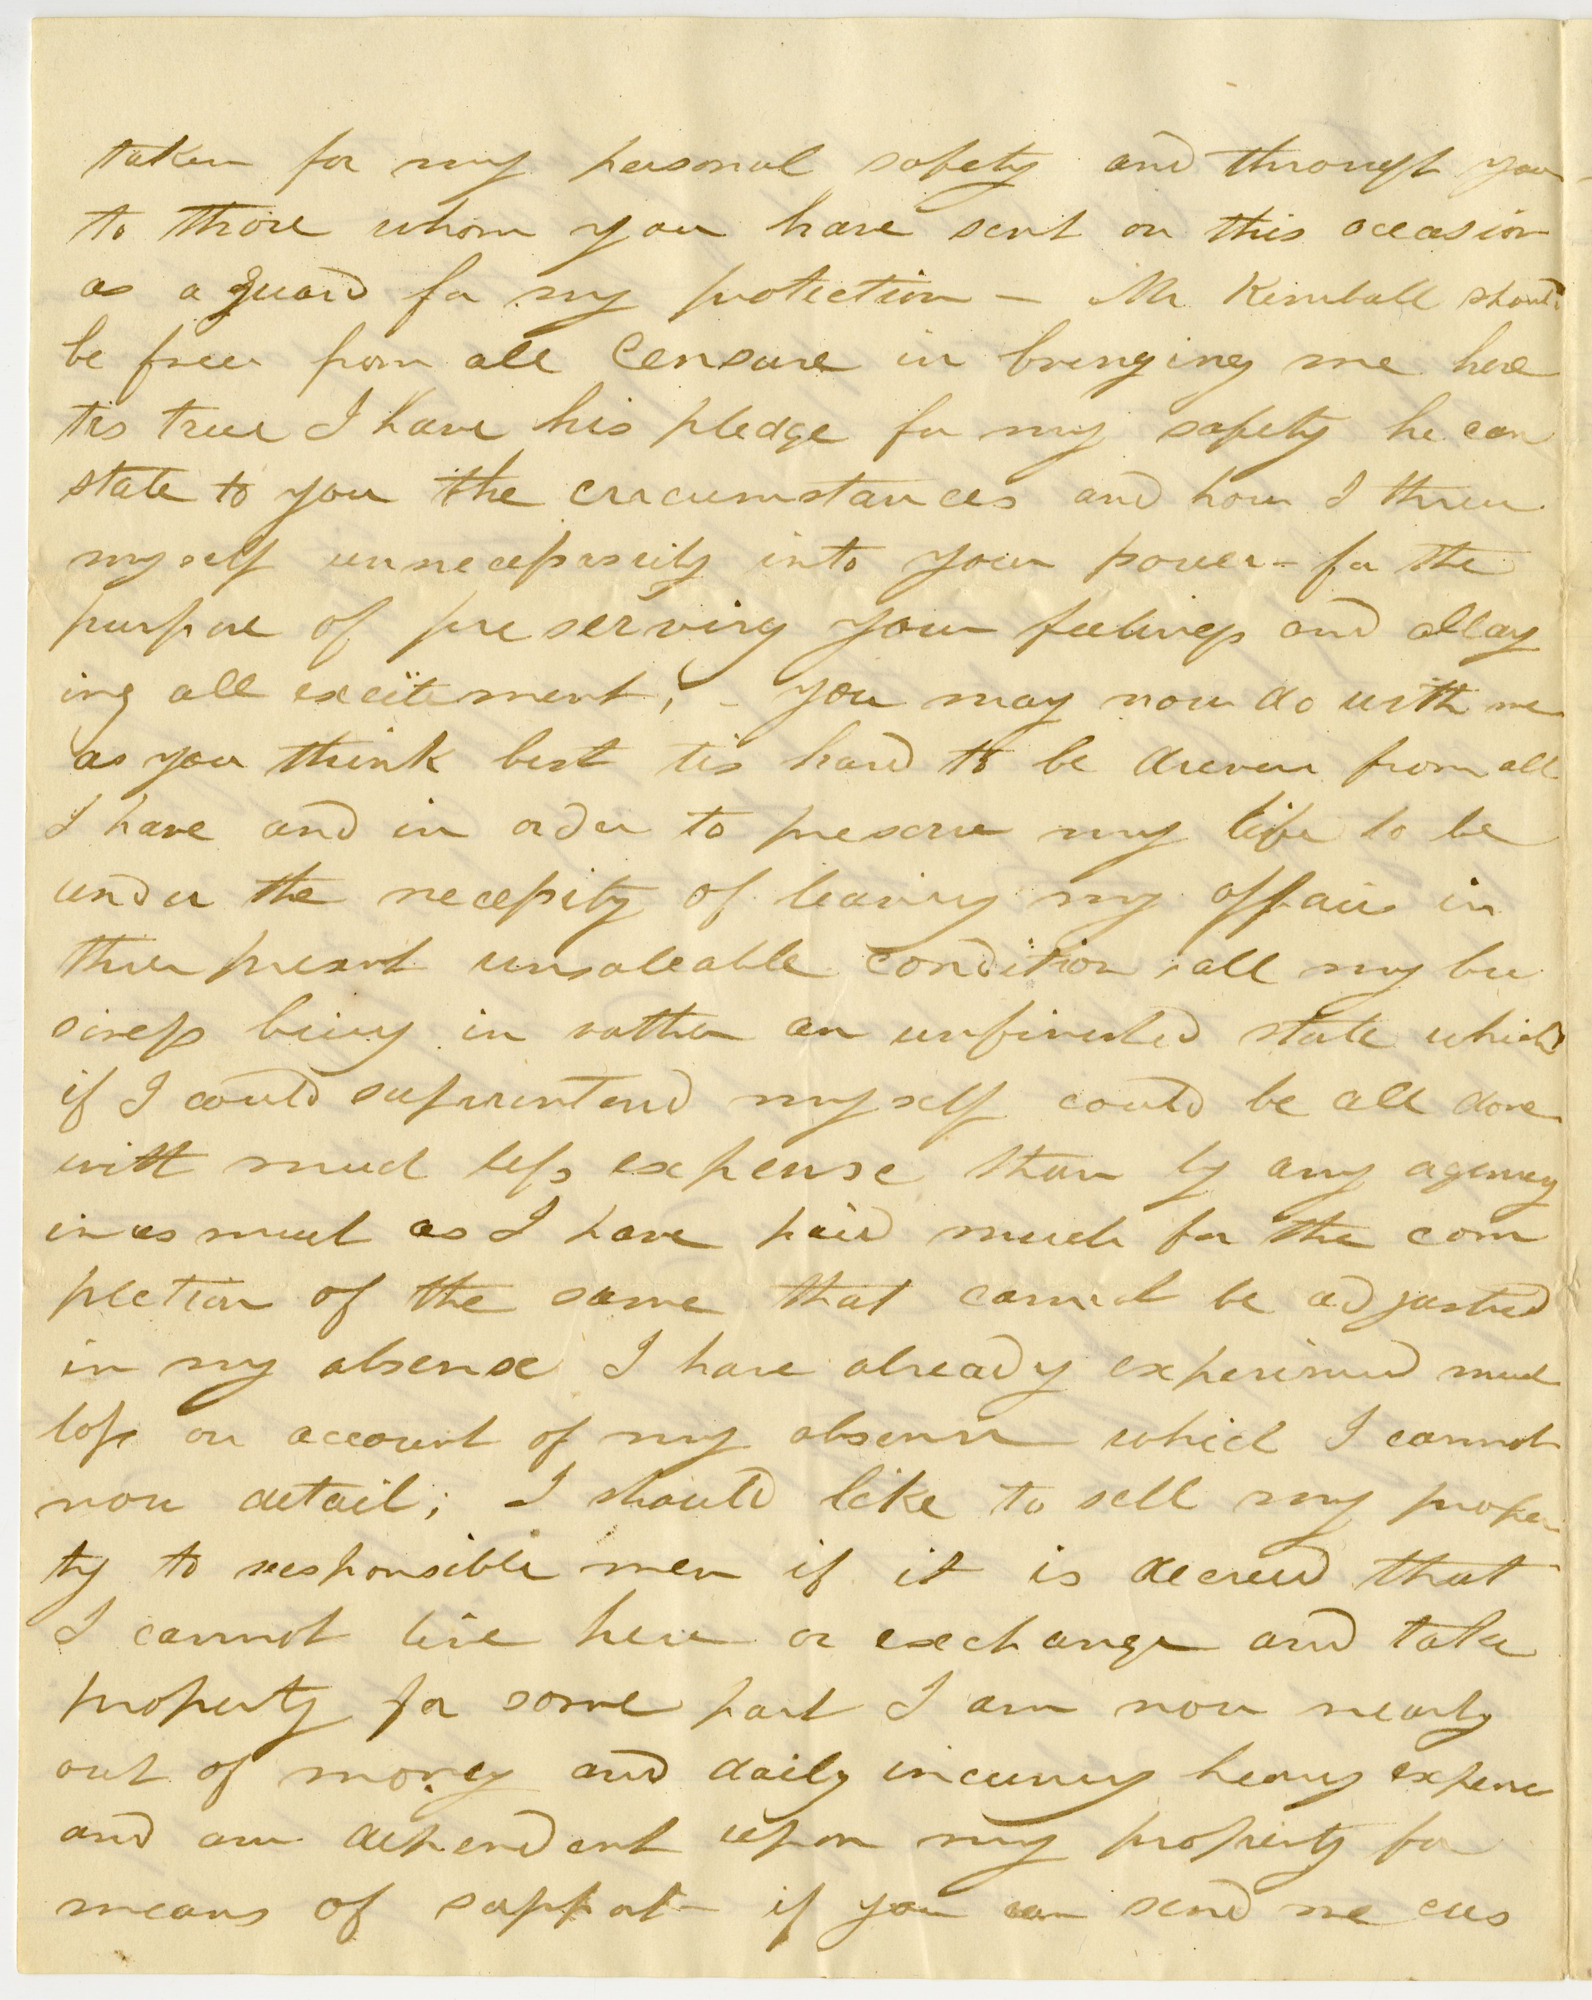 taken for my personal safety and through you
to those whom you have sent on this occasion
as a guard for my protection — Mr Kimball should
be free from all Censure in bringing me here
tis true I have his pledge for my safety he can
state to you the circumstances and how I threw
myself unnecessarily into your power - for the
purpose of preserving your feelings and allay
ing all excitement, - you may now do with me
as you think best tis hard to be driven from all
I have and in order to preserve my life to be
under the necessity of leaving my affairs in
their present unsaleable condition, all my bu
siness being in rather an unfinished state which
if I could superintend myself could be all done
with much less expense than by any agency
in as much as I have paid much for the com
pletion of the same that cannot be adjusted
in my absence I have already experienced much
loss on account of my absence which I cannot
now detail; I should like to sell my proper
ty to responsible men if it is decreed that
I cannot live here or exchange and take
property for some part I am now nearly
out of money and daily incurring heavy expense
and am dependent upon my property for
means of support - if you can send me cus